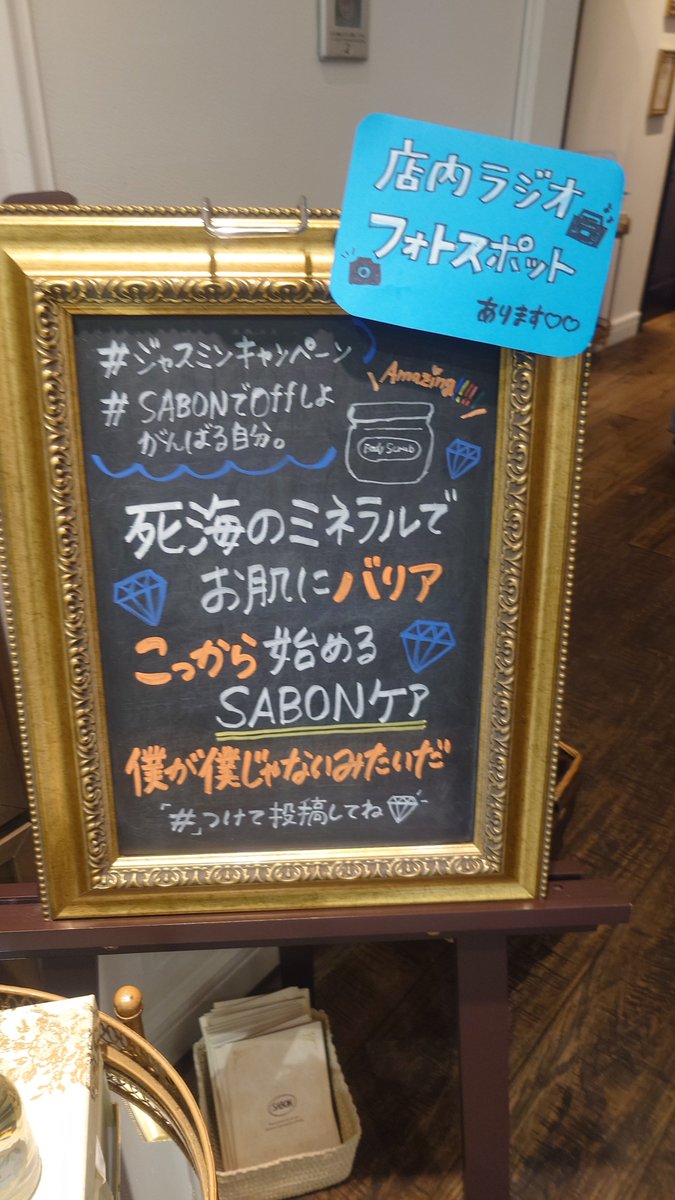 店内ラジオ
フォトスポット
あります♡♡
#ジャスミンキャンペーン
#SABONでOffしよ
がんばる自分。
Amazing!!!!
Body Scrub
死海のミネラルで
お肌にバリア
こっから始める
SABONケア
僕が僕じゃないみたいだ
「#」つけて投稿してね
SABON